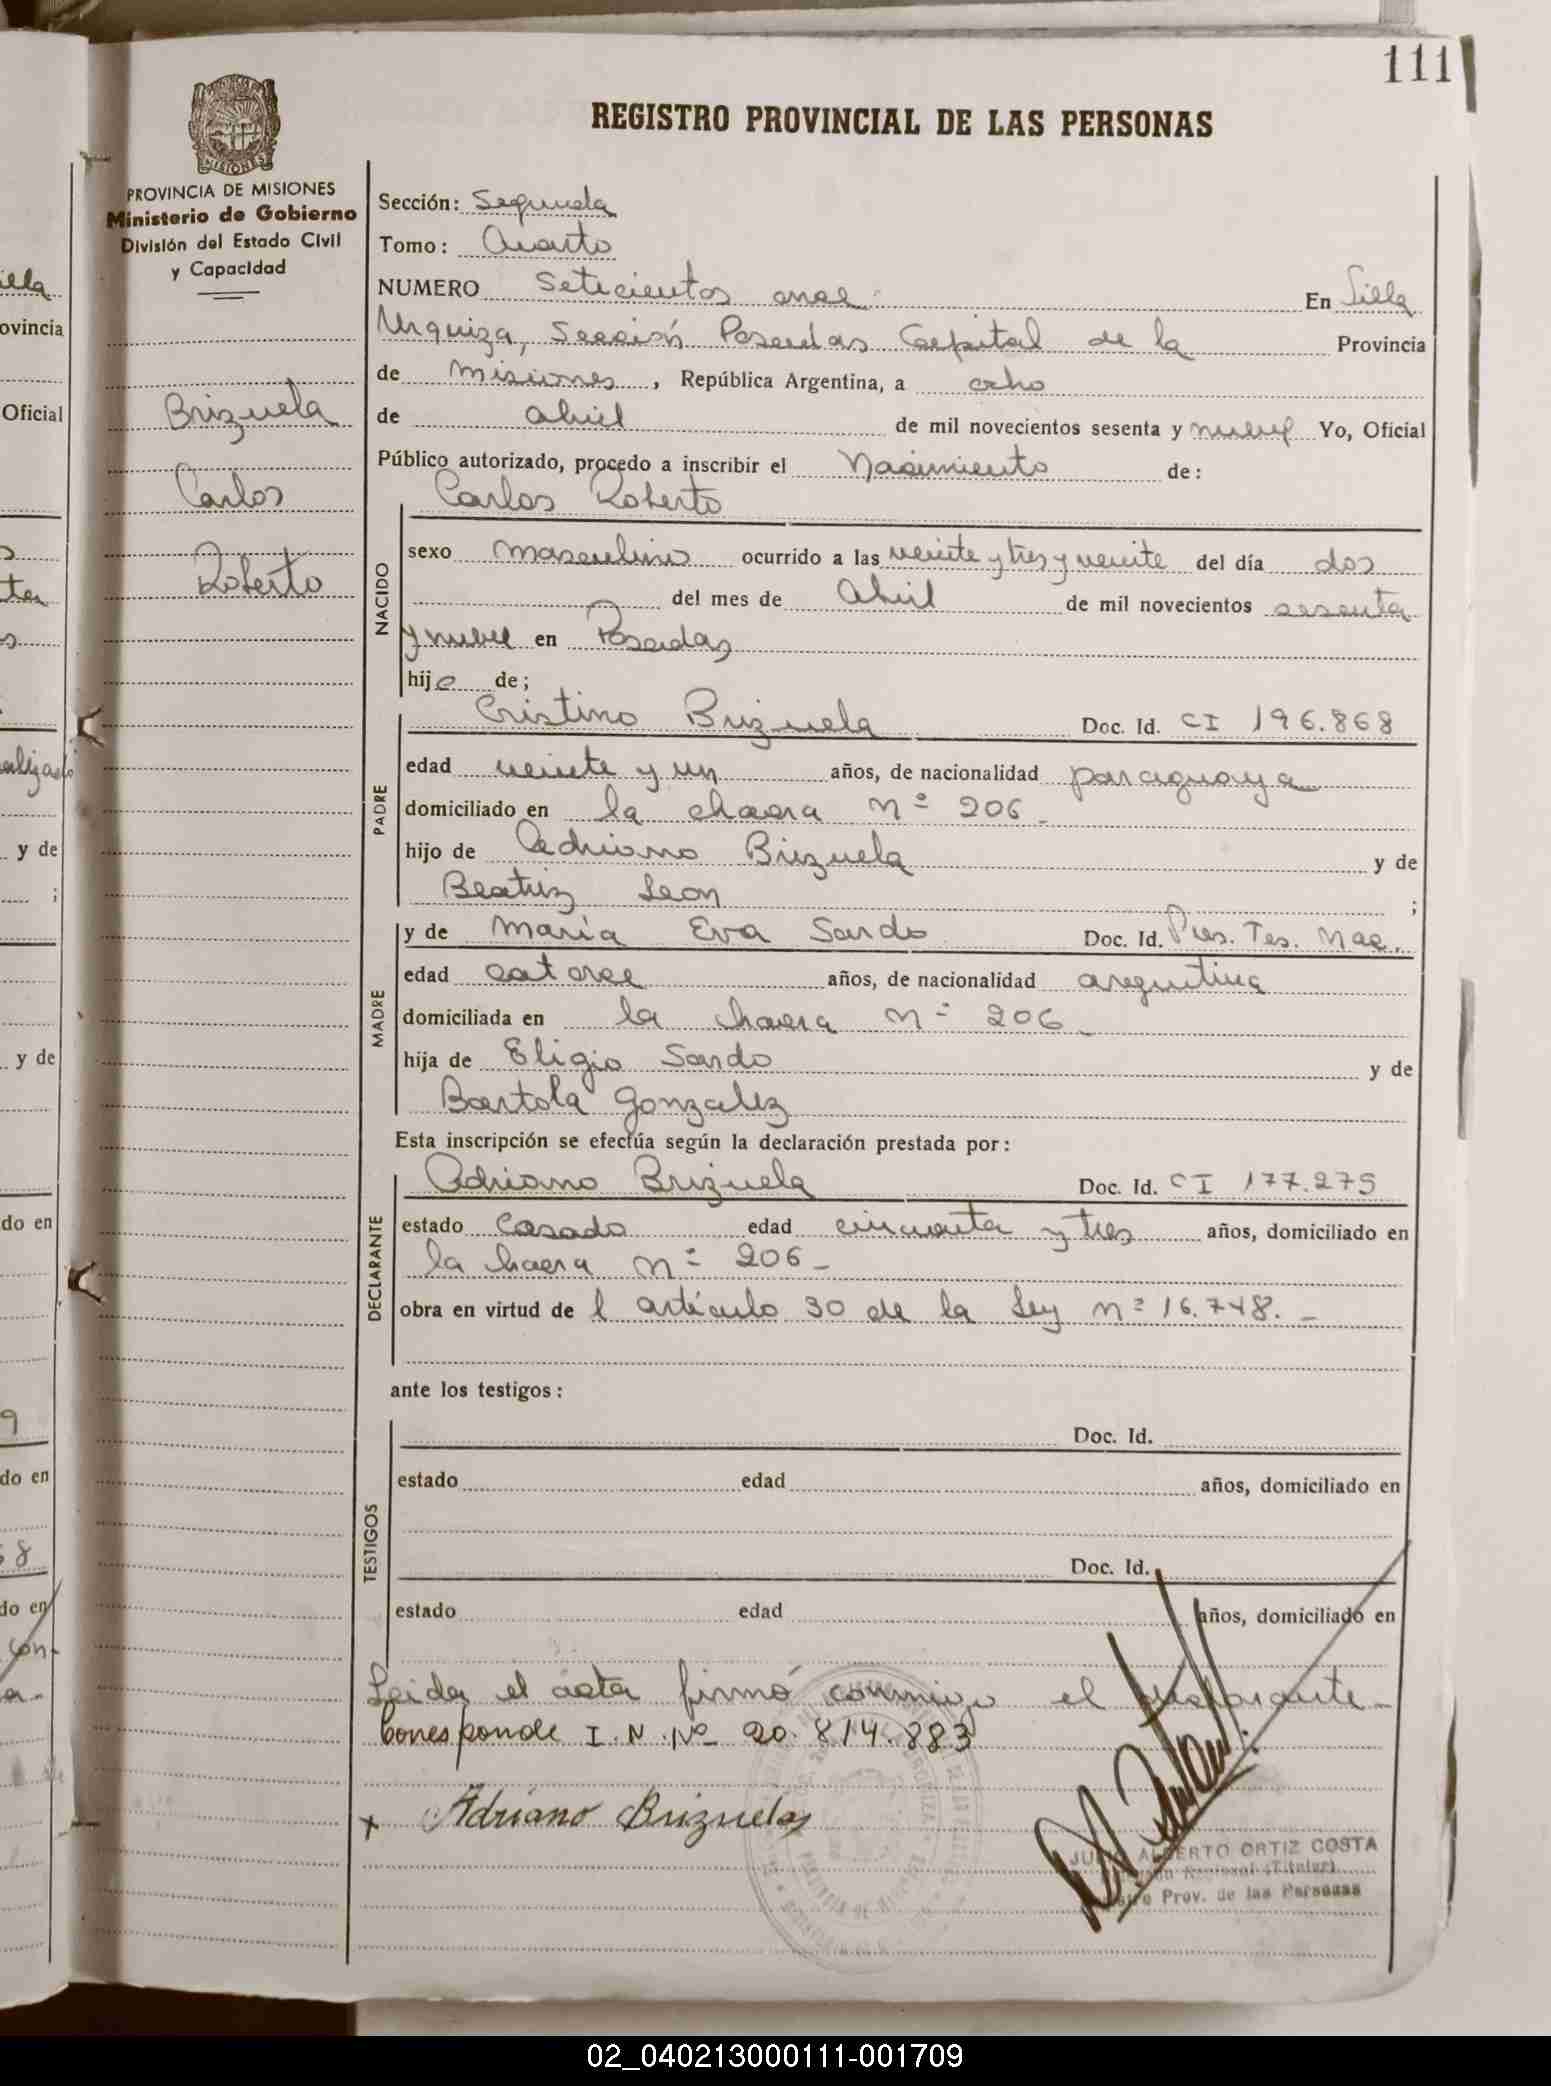 111
REGISTRO PROVINCIAL DE LAS PERSONAS
PROVINCIA DE MISIONES
Ministerio de Gobierno
División del Estado Civil
y Capacidad
Brizuela
Carlos
Roberto
Sección: Segunda
Tomo: Cuarto
NUMERO Setecientos once En Villa
Urquiza, Sección Posadas Capital de la Provincia
de Misiones, República Argentina, a ocho
de abril de mil novecientos sesenta y nueve Yo, Oficial
Público autorizado, procedo a inscribir el Nacimiento de:
Carlos Roberto
NACIDO
sexo masculino ocurrido a las veinte y tres y veinte del día dos
del mes de Abril de mil novecientos sesenta
y nueve en Posadas
hijo de;
Cristino Brizuela Doc. Id. CI 196.868
PADRE
edad veinte y un años, de nacionalidad paraguaya
domiciliado en la chacra nº 206
hijo de Adriano Brizuela y de
Beatriz Leon ;
y de María Eva Sardo Doc. Id. Pres. Tes. Nac.
MADRE
edad catorce años, de nacionalidad argentina
domiciliada en la chacra nº 206
hija de Eligio Sardo y de
Bartola Gonzalez
Esta inscripción se efectúa según la declaración prestada por:
Adriano Brizuela Doc. Id. CI 177.275
DECLARANTE
estado casado edad cincuenta y tres años, domiciliado en
la chacra nº 206
obra en virtud de l artículo 30 de la Ley nº 16.748.
ante los testigos:
Doc. Id.
TESTIGOS
estado edad años, domiciliado en
Doc. Id.
estado edad años, domiciliado en
Leida el acta firmó conmigo el declarante
Corresponde I.N.Nº 20.814.883
Adriano Brizuela
ALBERTO ORTIZ COSTA
(Titular)
Prov. de las Personas
02_040213000111-001709